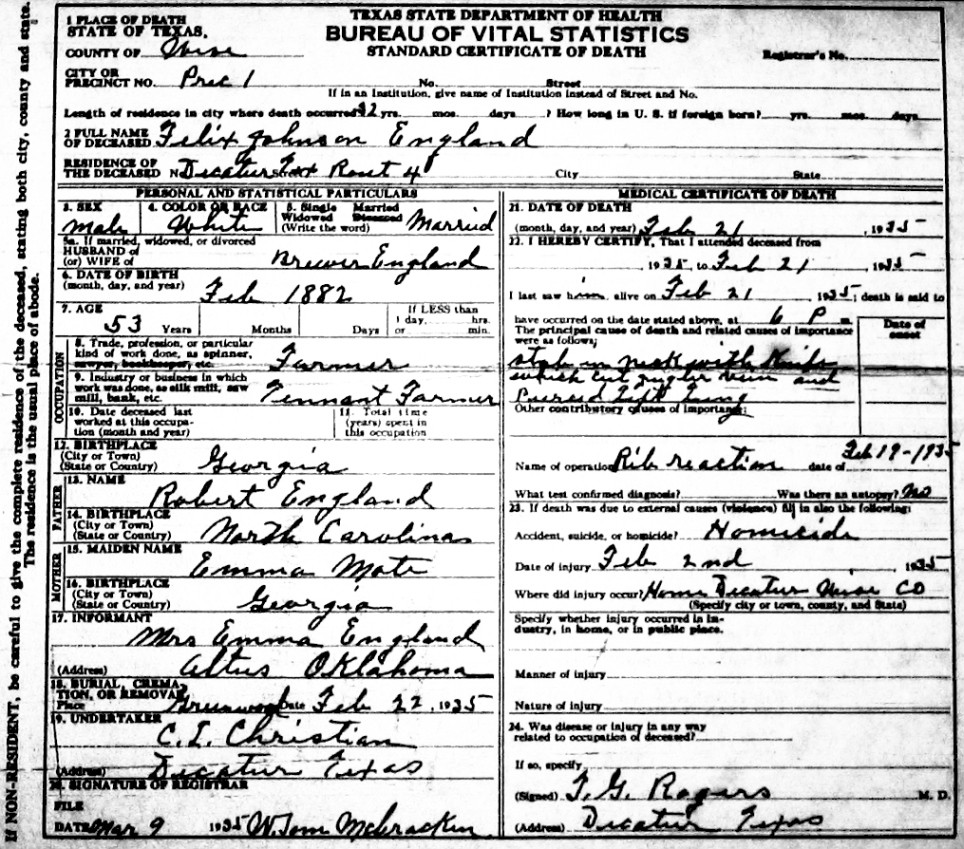 TEXAS STATE DEPARTMENT OF HEALTH
BUREAU OF VITAL STATISTICS
STANDARD CERTIFICATE OF DEATH
Registrar's No.
1 PLACE OF DEATH
STATE OF TEXAS,
COUNTY OF Wise
CITY OR
PRECINCT NO. Prec 1 No. Street
If in an Institution, give name of Institution instead of Street and No.
Length of residence in city where death occurred 42 yrs. mos. days ? How long in U. S. if foreign born? yrs. mos. days
2 FULL NAME
OF DECEASED Felix Johnson England
RESIDENCE OF
THE DECEASED Decatur Tex Rout 4 City State
PERSONAL AND STATISTICAL PARTICULARS
3. SEX
male
4. COLOR OR RACE
White
5. Single Married
Widowed Divorced
(Write the word) Married
5a. If married, widowed, or divorced
HUSBAND of
(or) WIFE of Brewer England
6. DATE OF BIRTH
(month, day, and year) Feb 1882
7. AGE
53 Years Months Days
If LESS than
1 day, hrs.
or min.
OCCUPATION
8. Trade, profession, or particular
kind of work done, as spinner,
sawyer, bookkeeper, etc. Farmer
9. Industry or business in which
work was done, as silk mill, saw
mill, bank, etc. Tennant Farmer
10. Date deceased last
worked at this occupa-
tion (month and year)
11. Total time
(years) spent in
this occupation
12. BIRTHPLACE
(City or Town)
(State or Country) Georgia
FATHER
13. NAME
Robert England
14. BIRTHPLACE
(City or Town)
(State or Country) North Carolina
MOTHER
15. MAIDEN NAME
Emma Mote
16. BIRTHPLACE
(City or Town)
(State or Country) Georgia
17. INFORMANT
Mrs Emma England
(Address) Altus Oklahoma
18. BURIAL, CREMA-
TION, OR REMOVAL
Place Date Feb 22, 1935
19. UNDERTAKER
C. I. Christian
(Address) Decatur Texas
20. SIGNATURE OF REGISTRAR
FILE
DATE Mar 9 1935 W. Tom McCracken
MEDICAL CERTIFICATE OF DEATH
21. DATE OF DEATH
(month, day, and year) Feb 21, 1935
22. I HEREBY CERTIFY, That I attended deceased from
, 1935, to Feb 21, 1935
I last saw him alive on Feb 21 1935; death is said to
have occurred on the date stated above, at 6 P m.
The principal cause of death and related causes of importance
were as follows;
Date of
onset
stab in neck with Knife
which cut juglar vein and
Pierced Left Lung
Other contributory causes of importance;
Name of operation Rib reaction date of Feb 19-1935
What test confirmed diagnosis? Was there an autopsy? No
23. If death was due to external causes (violence) fill in also the following:
Accident, suicide, or homicide? Homicide
Date of injury Feb 2nd, 1935
Where did injury occur? Home Decatur Wise CO
(Specify city or town, county, and State)
Specify whether injury occurred in In-
dustry, in home, or in public place.
Manner of injury
Nature of injury
24. Was disease or injury in any way
related to occupation of deceased?
If so, specify
(Signed) T. G. Rogers M. D.
(Address) Decatur Texas
If NON-RESIDENT, be careful to give the complete residence of the deceased, stating both city, county and state.
The residence is the usual place of abode.